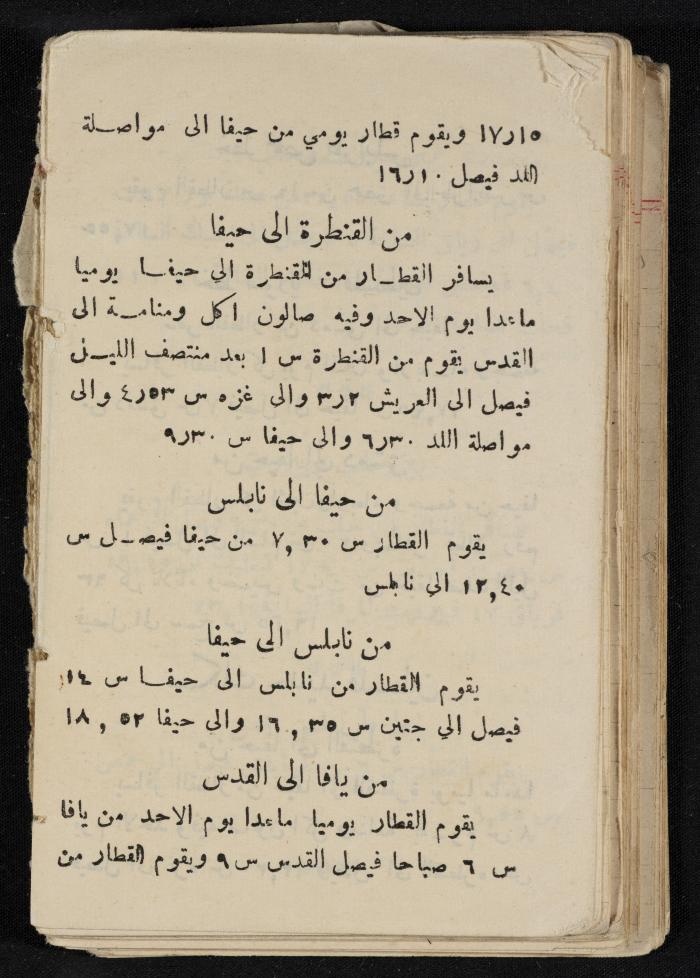 ١٥ر١٧ ويقوم قطار يومي من حيفا الى مواصلة
اللد فيصل ١٠ر١٦
من القنطرة الى حيفا
يسافر القطار من القنطرة الي حيفا يوميا
ماعدا يوم الاحد وفيه صالون اكل ومنامة الى
القدس يقوم من القنطرة س ١ بعد منتصف الليل
فيصل الى العريش ٢ر٣ والى غزه س ٥٣ر٤ والى
مواصلة اللد ٣٠ر٦ والى حيفا س ٣٠ر٩
من حيفا الى نابلس
يقوم القطار س ٧,٣٠ من حيفا فيصل س
١٢,٤٠ الي نابلس
من نابلس الى حيفا
يقوم القطار من نابلس الى حيفا س ١٤
فيصل الي جنين س ١٦,٣٥ والي حيفا ١٨,٥٢
من يافا الى القدس
يقوم القطار يوميا ماعدا يوم الاحد من يافا
س ٦ صباحا فيصل القدس س ٩ ويقوم القطار من